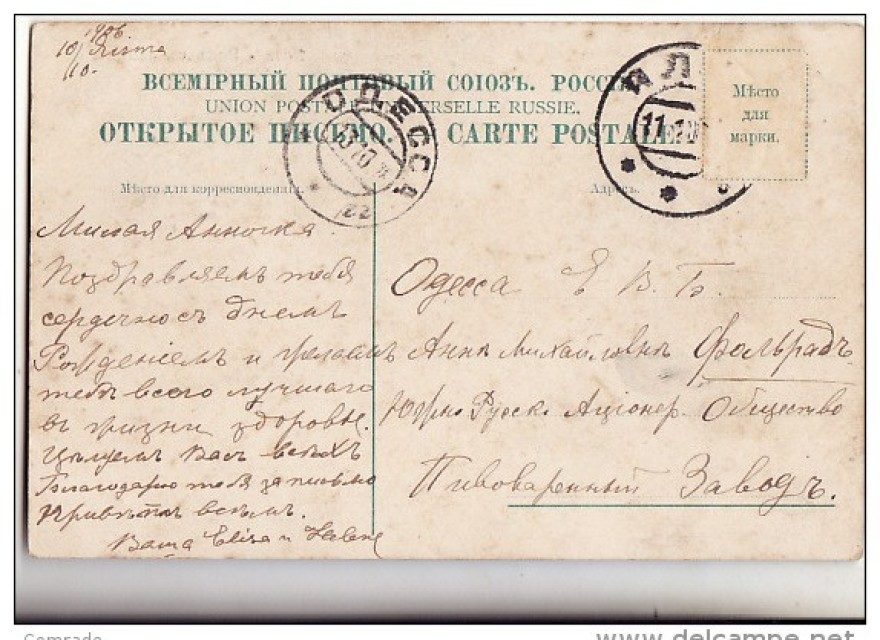 1906
10/
10.
ВСЕМІРНЫЙ ПОЧТОВЫЙ СОЮЗЪ. РОССІЯ
UNION POSTALE UNIVERSELLE RUSSIE.
ОТКРЫТОЕ ПИСЬМО. CARTE POSTALE
Мѣсто для корреспонденціи.
Адресъ.
Мѣсто
для
марки.
ОДЕССА
11.10
Милая Анночка
Поздравляемъ тебя
сердечно съ днемъ
Рожденіемъ и желаемъ
тебѣ всего лучшаго
въ жизни здоровье.
Цѣлуемъ Васъ всѣхъ
Благодарю тебя за письмо
Привѣтъ всѣмъ.
Ваша Eliza и Helene
Одесса Е. В. Б.
Аннѣ Михайловнѣ Фольрадъ
Южно Русск. Акціонер. Общество
Пивоваренный Заводъ.
Comrade
www.delcampe.net